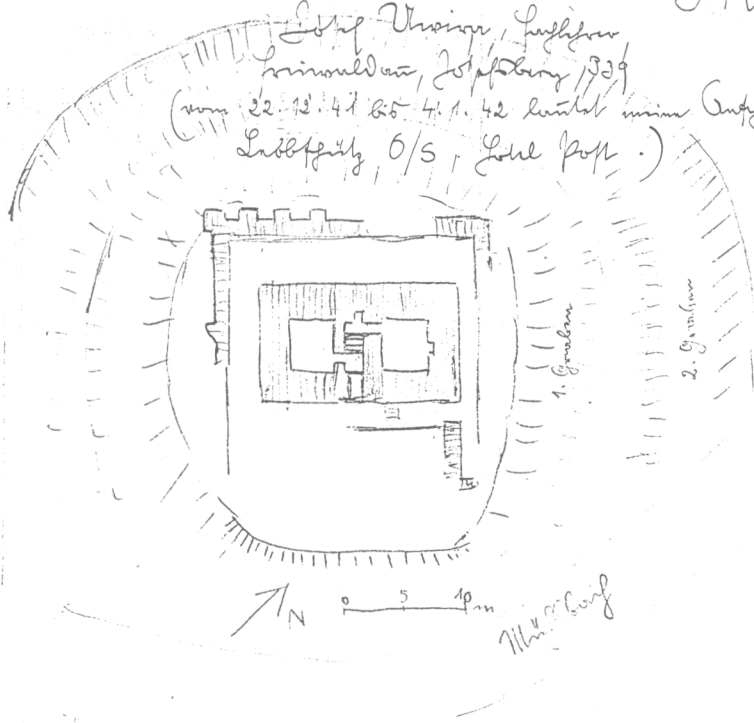 Josef Uwira, Fachlehrer
Freiwaldau, Josefsberg 339
(vom 22.12.41 bis 4.1.42 lautet meine
Leobschütz, O/S, Hotel Post.)
1. Graben
2. Graben
N
0 5 10 m